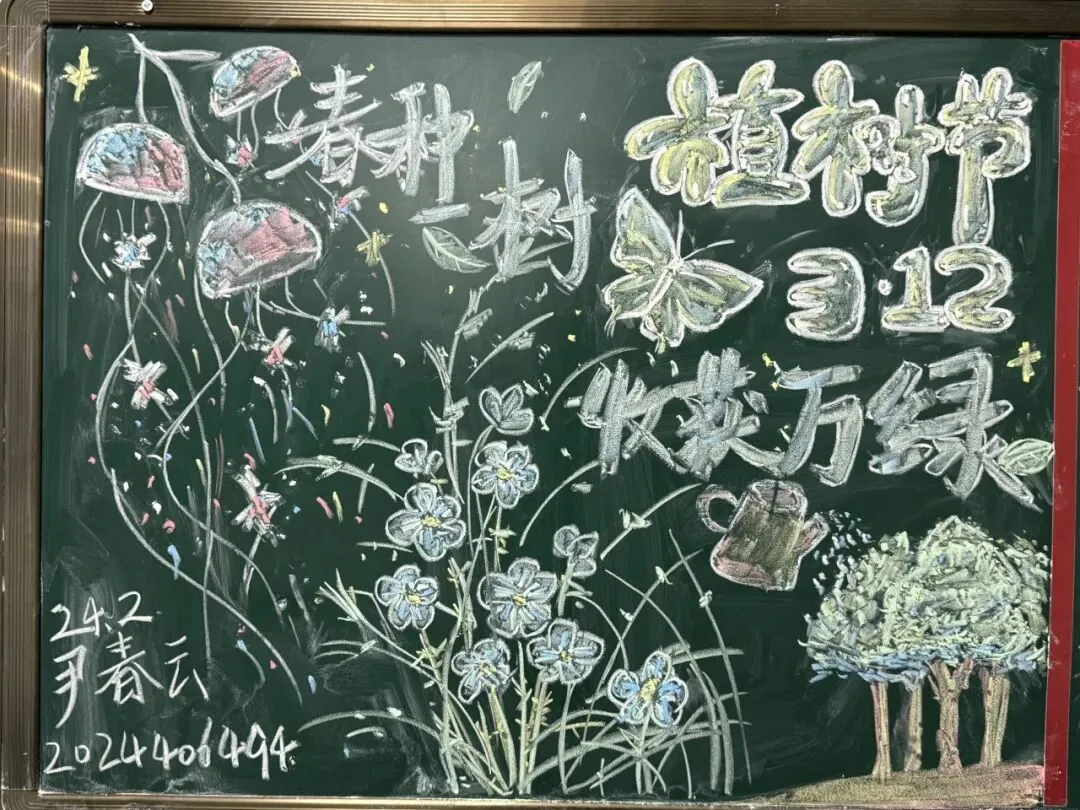 植树节
3·12
春种
一树
收获万绿
24.2
尹春云
2024406494